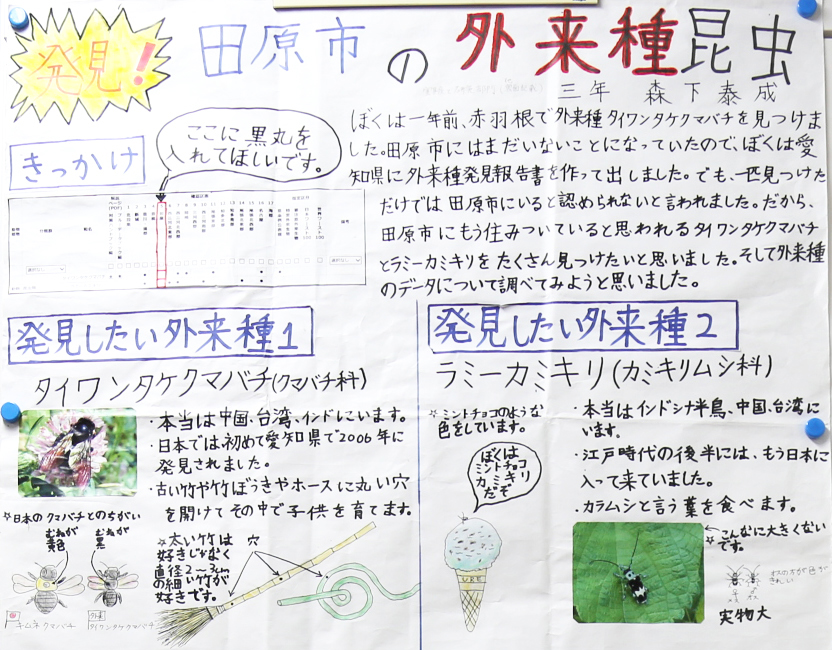 発見!
田原市の外来種昆虫
三年 森下泰成
きっかけ
ここに黒丸を
入れてほしいです。
ぼくは一年前、赤羽根で外来種タイワンタケクマバチを見つけま
した。田原市にはまだいないことになっていたので、ぼくは愛
知県に外来種発見報告書を作って出しました。でも、一匹見つけた
だけでは田原市にいると認められないと言われました。だから、
田原市にもう住みついていると思われるタイワンタケクマバチ
とラミーカミキリをたくさん見つけたいと思いました。そして外来種
のデータについて調べてみようと思いました。
発見したい外来種1
タイワンタケクマバチ(クマバチ科)
・本当は中国、台湾、インドにいます。
・日本では初めて愛知県で2006年に
発見されました。
・古い竹や竹ぼうきやホースに丸い穴
を開けてその中で子供を育てます。
☆日本のクマバチとのちがい
むねが
黄色
むねが
黒
キムネクマバチ
外来
タイワンタケクマバチ
☆太い竹は
好きじゃなく
直径2〜3cm
の細い竹が
好きです。
穴
発見したい外来種2
ラミーカミキリ(カミキリムシ科)
☆ミントチョコのような
色をしています。
ぼくは
ミントチョコ
カミキリ
だぞ
・本当はインドシナ半島、中国、台湾に
います。
・江戸時代の後半には、もう日本に
入って来ていました。
・カラムシと言う葉を食べます。
☆こんなに大きくない
です。
オスの方が色が
きれい
オス
メス
実物大